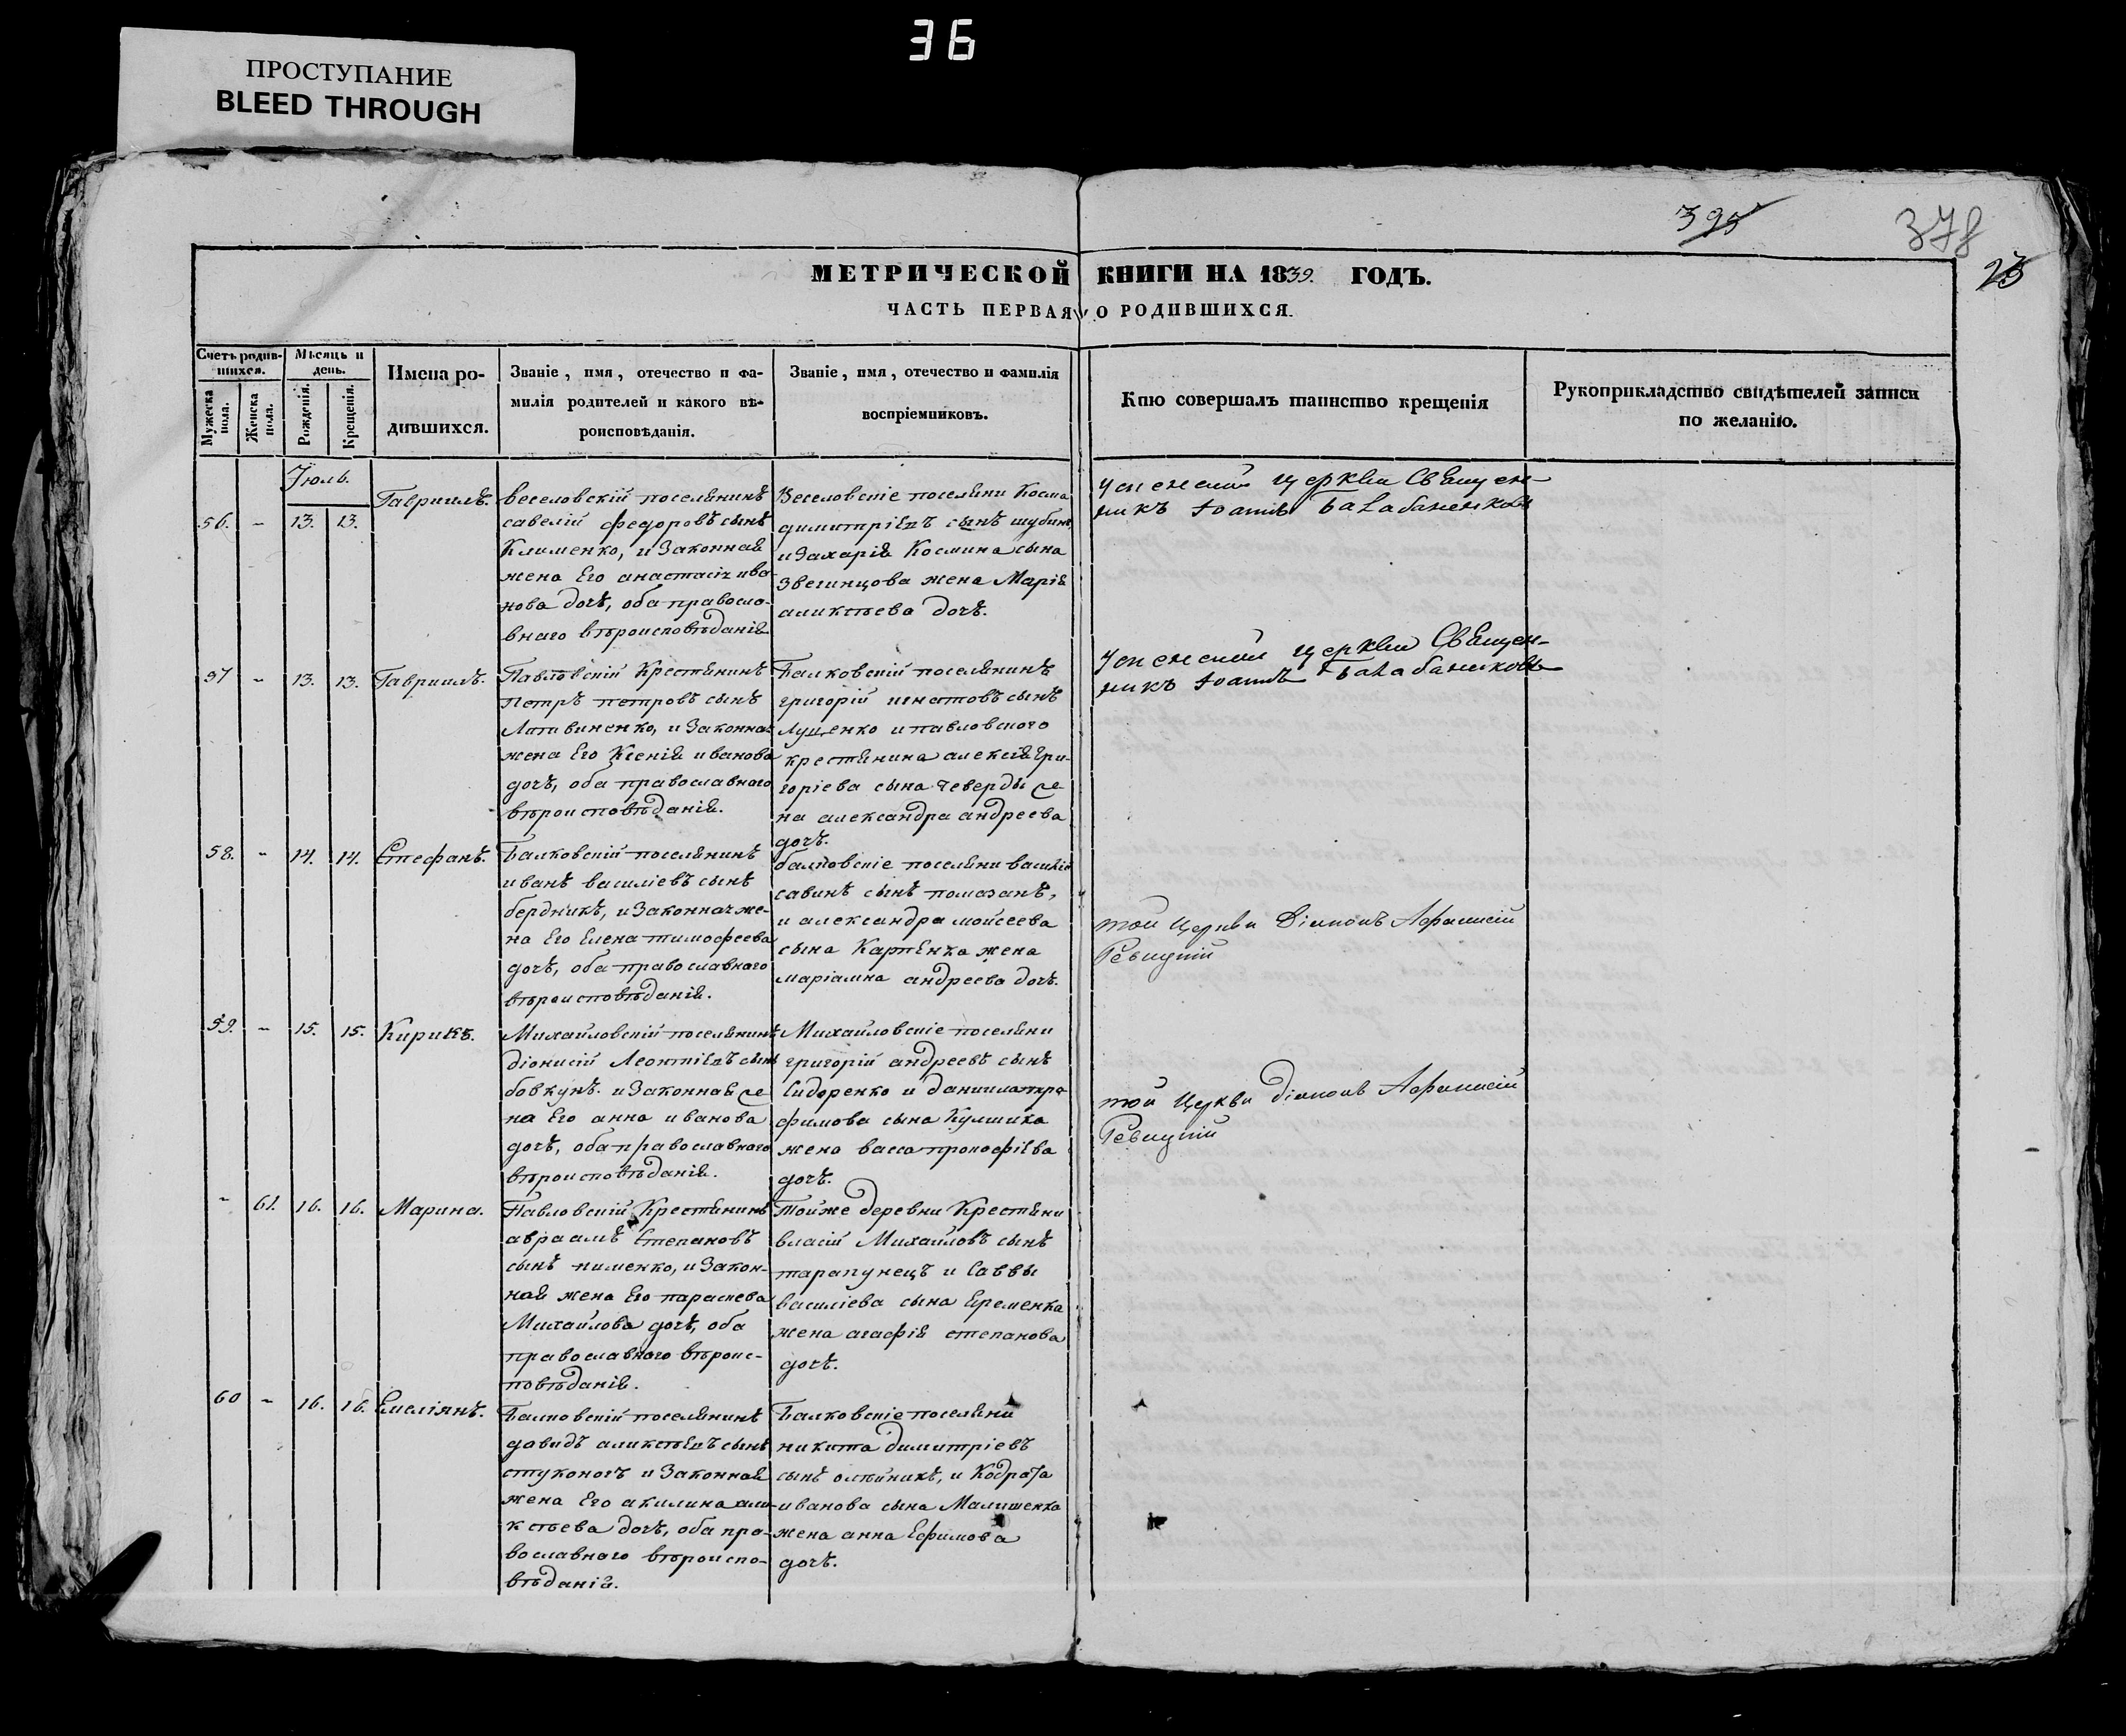 36
ПРОСТУПАНИЕ
BLEED THROUGH
395
378
25
МЕТРИЧЕСКОЙ КНИГИ НА 1839. ГОДЪ.
ЧАСТЬ ПЕРВАЯ О РОДИВШИХСЯ.
Счетъ родив-
шихся.
Мужеска
пола.
Женска
пола.
Мѣсяцъ и
день.
Рожденія.
Крещенія.
Имена ро-
дившихся.
Званіе, имя, отечество и фа-
милія родителей и какого вѣ-
роисповѣданія.
Званіе, имя, отечество и фамилія
воспріемниковъ.
Кто совершалъ таинство крещенія
Рукоприкладство свидѣтелей записи
по желанію.
Іюль.
56. - 13. 13.
Гавриилъ.
Веселовскій поселянинъ
савелій федоровъ сынъ
Клименко, и Законная
жена Его анастасія ива-
нова дочь, оба правосла-
внаго вѣроисповѣданія
Веселовскіе поселяни Косма
димитріевъ сынъ шубинъ,
и Захарія Космина сына
Звегинцова жена Марія
аликсѣева дочь.
Успенской церкви Священ-
никъ Іоаннъ Балабаненковъ
57 - 13. 13. Гавриилъ.
Павловскій Крестянинъ
петръ петровъ сынъ
Литвиненко, и Законная
жена Его Ксенія иванова
дочь, оба православнаго
вѣроисповѣданія.
Балковскій поселянинъ
григорій игнатовъ сынъ
Луценко и павловского
крестянина алексія Гри-
горіева сына Чеверды же-
на александра андреева
дочь.
Успенской церкви Священ-
никъ Іоаннъ Балабаненковъ
58. - 14. 14. Стефанъ.
Балковскій поселянинъ
иванъ василіевъ сынъ
бердникъ, и Законная же-
на Его Елена тимофеева
дочь, оба православнаго
вѣроисповѣданія.
балковскіе поселяни василій
савинъ сынъ помазанъ,
и александра моисеева
сына Карпенка жена
маріамна андреева дочь.
той Церкви Діяконъ Афанасій
Ревицкій
59. - 15. 15. Кирикъ.
Михайловскій поселянинъ
діонисій Леонтіевъ сынъ
бовкунъ. и Законная же-
на Его анна иванова
дочь, оба православнаго
вѣроисповѣданія.
Михайловскіе поселяни
григорій андреевъ сынъ
Сидоренко и даниила тро-
фимова сына Кулшика
жена васса прокофіева
дочь.
той Церкви діяконъ Афанасій
Ревицкій
- 61. 16. 16. Марина.
Павловскій Крестянинъ
авраамъ Степановъ
сынъ пименко, и Закон-
ная жена Его параскева
Михайлова дочь, оба
православнаго вѣроис-
повѣданія.
Тойже деревни Крестяни
власій Михайловъ сынъ
тарапунецъ и Саввы
василіева сына Еременка
жена агафія степанова
дочь.
60 - 16. 16. Емеліянъ.
Балковскій поселянинъ
давидъ аликсѣевъ сынъ
стуконогъ и Законная
жена Его акилина али-
ксѣева дочь, оба пра-
вославнаго вѣроиспо-
вѣданія.
Балковскіе поселяни
никита димитріевъ
сынъ олѣйникъ, и Кодрата
иванова сына Малишенка
жена анна Ефимова
дочь.